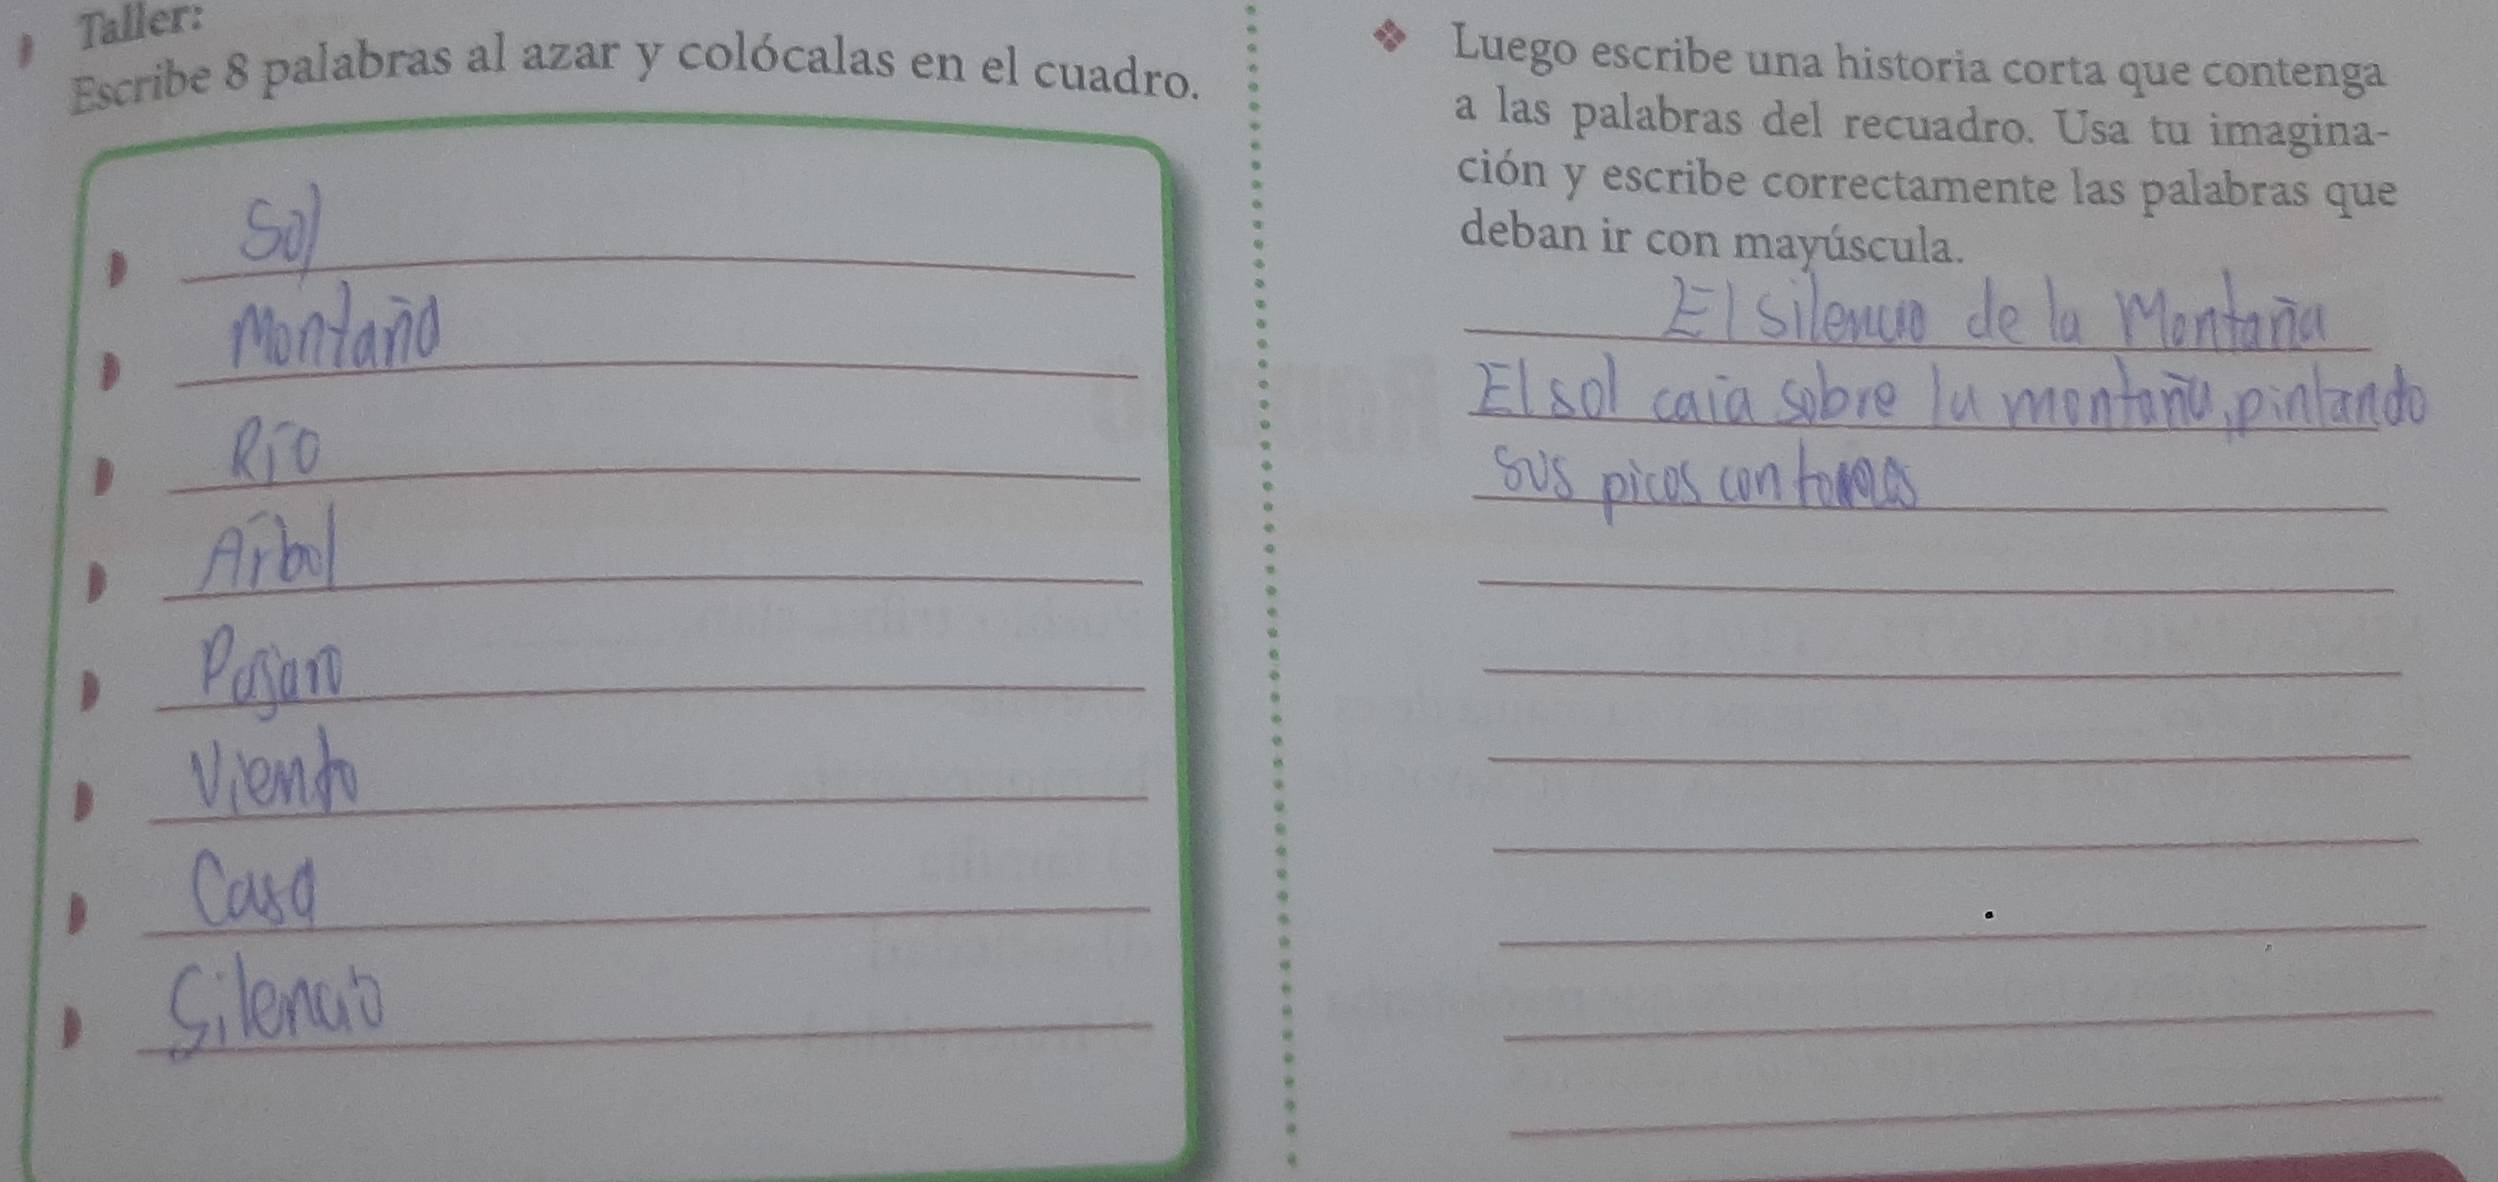 Taller:
Escribe 8 palabras al azar y colócalas en el cuadro.
Sol
Montaña
Río
Árbol
Pajaro
Viento
Casa
Silencio
Luego escribe una historia corta que contenga
a las palabras del recuadro. Usa tu imagina-
ción y escribe correctamente las palabras que
deban ir con mayúscula.
El silencio de la Montaña
El sol caía sobre la montaña, pintando
sus picos con